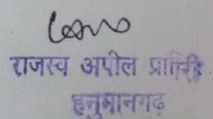 राजस्व अपील प्राधि
हनुमानगढ़